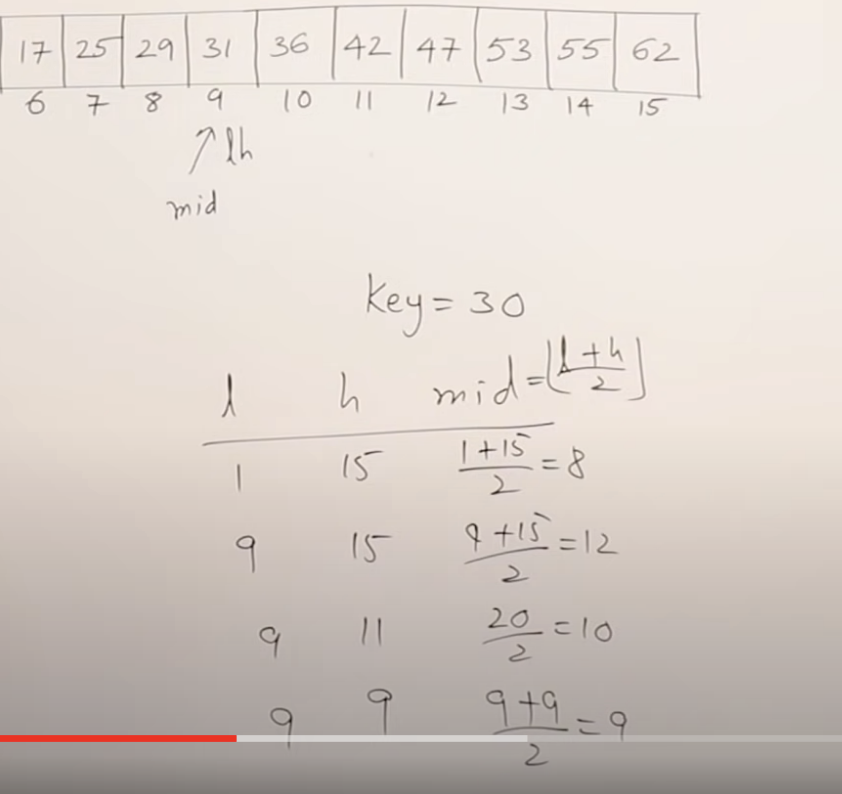 17 25 29 31 36 42 47 53 55 62
6 7 8 9 10 11 12 13 14 15
↑ lh
mid
Key = 30
l h mid = ⌊(l+h)/2⌋
1 15 (1+15)/2 = 8
9 15 (9+15)/2 = 12
9 11 20/2 = 10
9 9 (9+9)/2 = 9